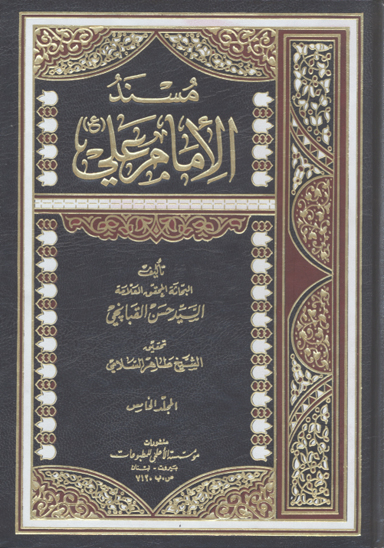 مُسْنَدُ
الإمام علي (ع)
تأليف
البحاثة المحقق العلامة
السيد حسن القبانجي
تحقيق
الشيخ طاهر السلامي
المجلد الخامس
منشورات
مؤسسة الأعلمي للمطبوعات
بيروت - لبنان
ص.ب ٧١٢٠